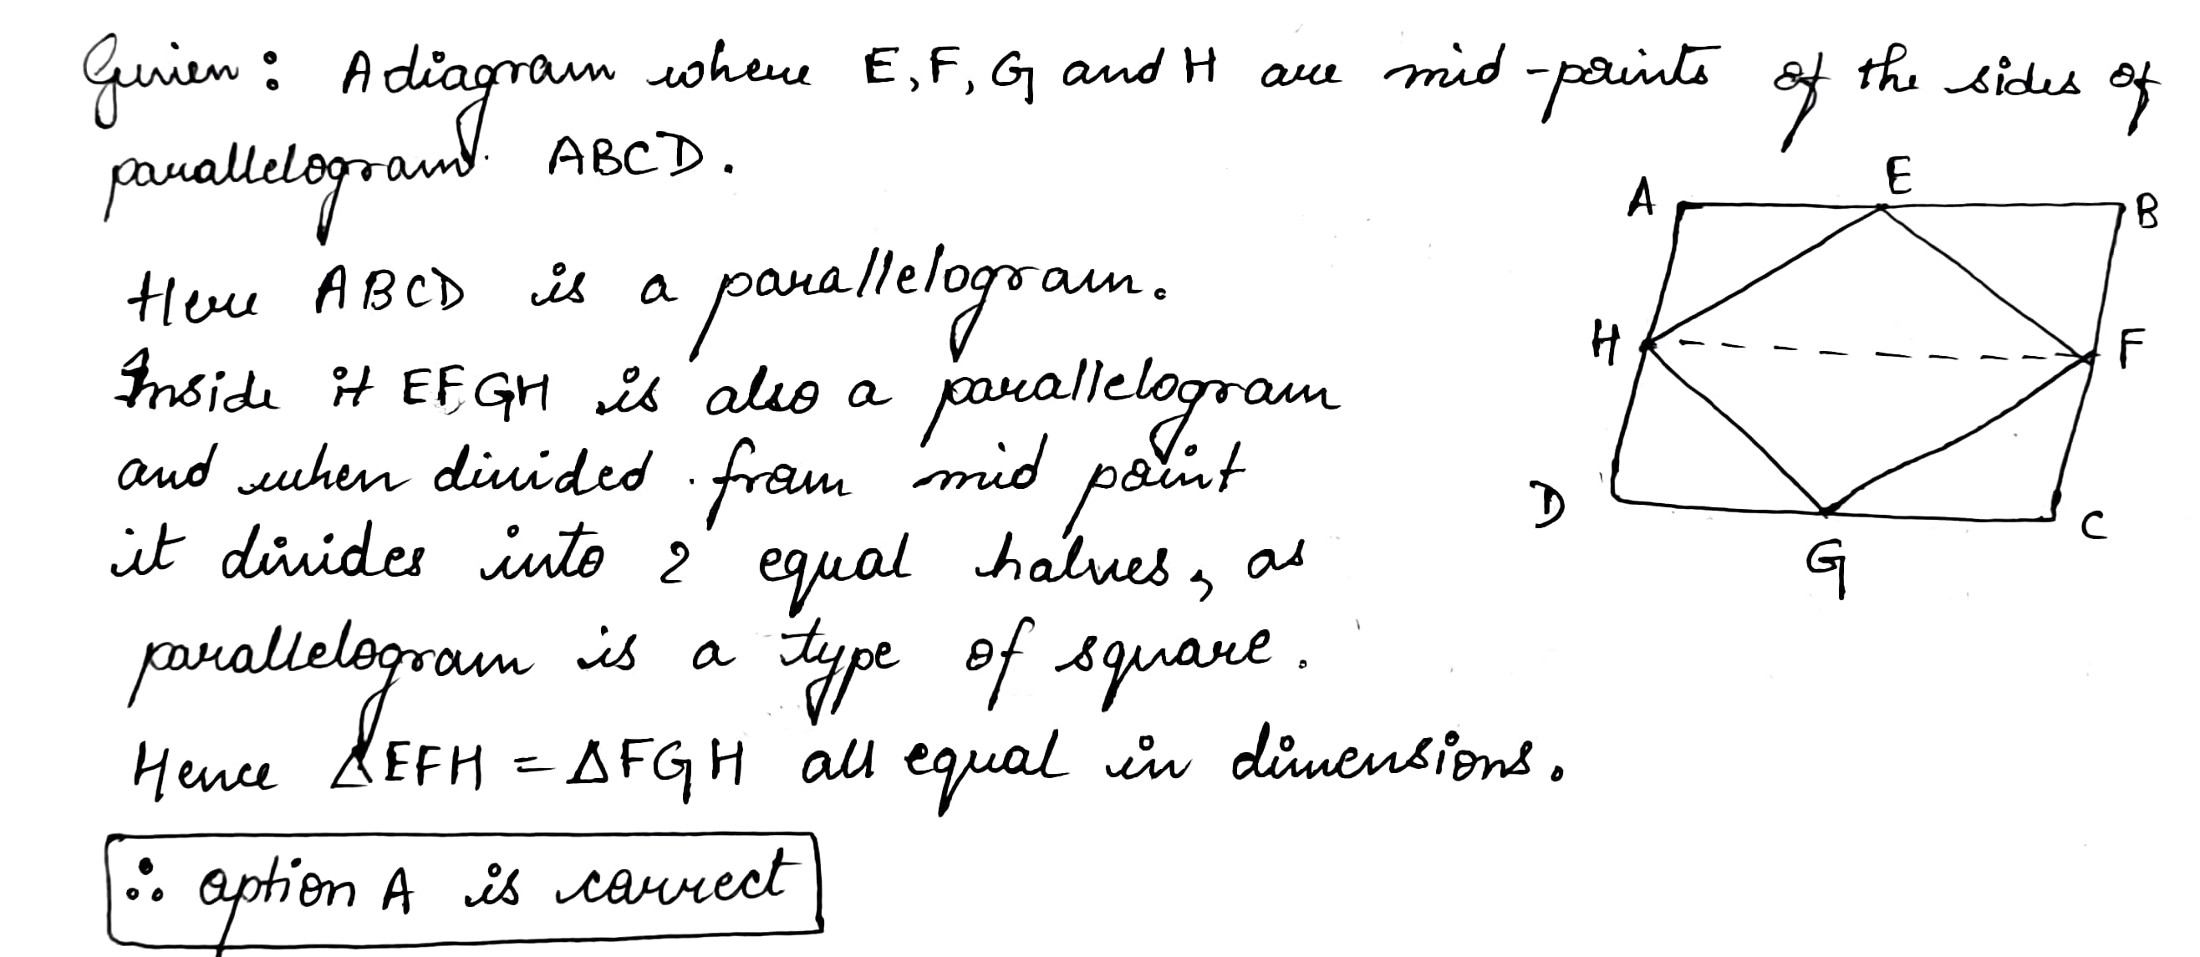 Given : A diagram where E, F, G and H are mid-points of the sides of
parallelogram ABCD.
A E B
H F
D G C
Here ABCD is a parallelogram.
Inside it EFGH is also a parallelogram
and when divided from mid point
it divides into 2 equal halves, as
parallelogram is a type of square.
Hence ΔEFH = ΔFGH all equal in dimensions.
∴ option A is correct